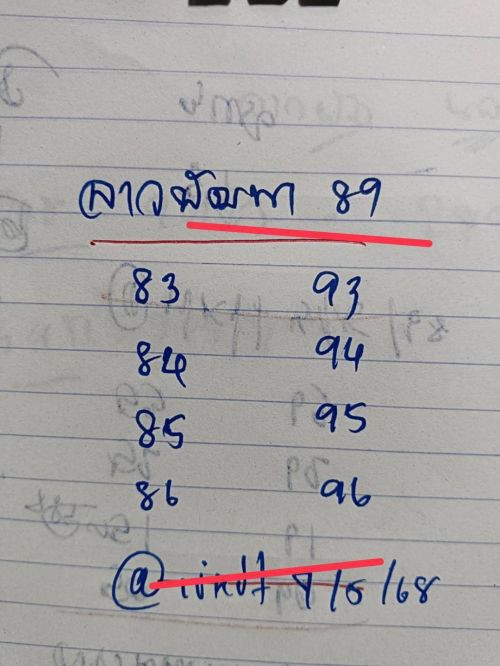 ลาวพัฒนา 89
83 93
84 94
85 95
86 96
/68